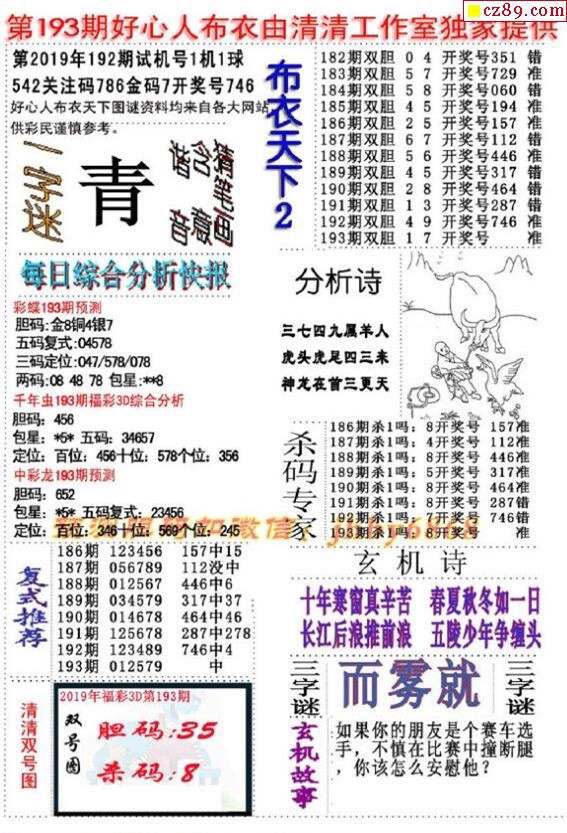 cz89.com
第193期好心人布衣由清清工作室独家提供
第2019年192期试机号1机1球
542关注码786金码7开奖号746
好心人布衣天下图谜资料均来自各大网站
供彩民谨慎参考。
一字迷
青
每日综合分析快报
彩蝶193期预测
胆码:金8铜4银7
五码复式:04578
三码定位:047/578/078
两码:08 48 78 包星:**8
千年虫193期福彩3D综合分析
胆码: 456
包星: *5* 五码: 34657
定位: 百位: 456十位: 578个位: 356
中彩龙193期预测
胆码: 652
包星: *5* 五码: 23456
定位: 百位: 346十位: 569个位: 245
复式推荐
186期 123456 157中15
187期 056789 112没中
188期 012567 446中6
189期 034579 317中37
190期 014678 464中46
191期 125678 287中278
192期 123489 746中4
193期 012579 中
清清双号图
2019年福彩3D第193期
双号图
胆码:35
杀码:8
布衣天下2
182期双胆 0 4 开奖号351 错
183期双胆 5 7 开奖号729 准
184期双胆 5 8 开奖号060 错
185期双胆 4 5 开奖号194 准
186期双胆 2 5 开奖号157 准
187期双胆 6 7 开奖号112 错
188期双胆 5 6 开奖号446 准
189期双胆 4 5 开奖号317 错
190期双胆 2 8 开奖号464 错
191期双胆 1 3 开奖号287 错
192期双胆 4 9 开奖号746 准
193期双胆 1 7 开奖号 准
分析诗
三七四九属羊人
虎头虎尾四三来
神龙在首三更天
杀码专家
186期杀1吗: 8开奖号 157准
187期杀1吗: 4开奖号 112准
188期杀1吗: 7开奖号 446准
189期杀1吗: 5开奖号 317准
190期杀1吗: 8开奖号 464准
191期杀1吗: 8开奖号 287错
192期杀1吗: 7开奖号 746错
193期杀1吗: 8开奖号 准
玄机诗
十年寒窗真辛苦 春夏秋冬如一日
长江后浪推前浪 五陵少年争缠头
三字谜
而雾就
三字谜
玄机故事
如果你的朋友是个赛车选
手，不慎在比赛中撞断腿
，你该怎么安慰他？